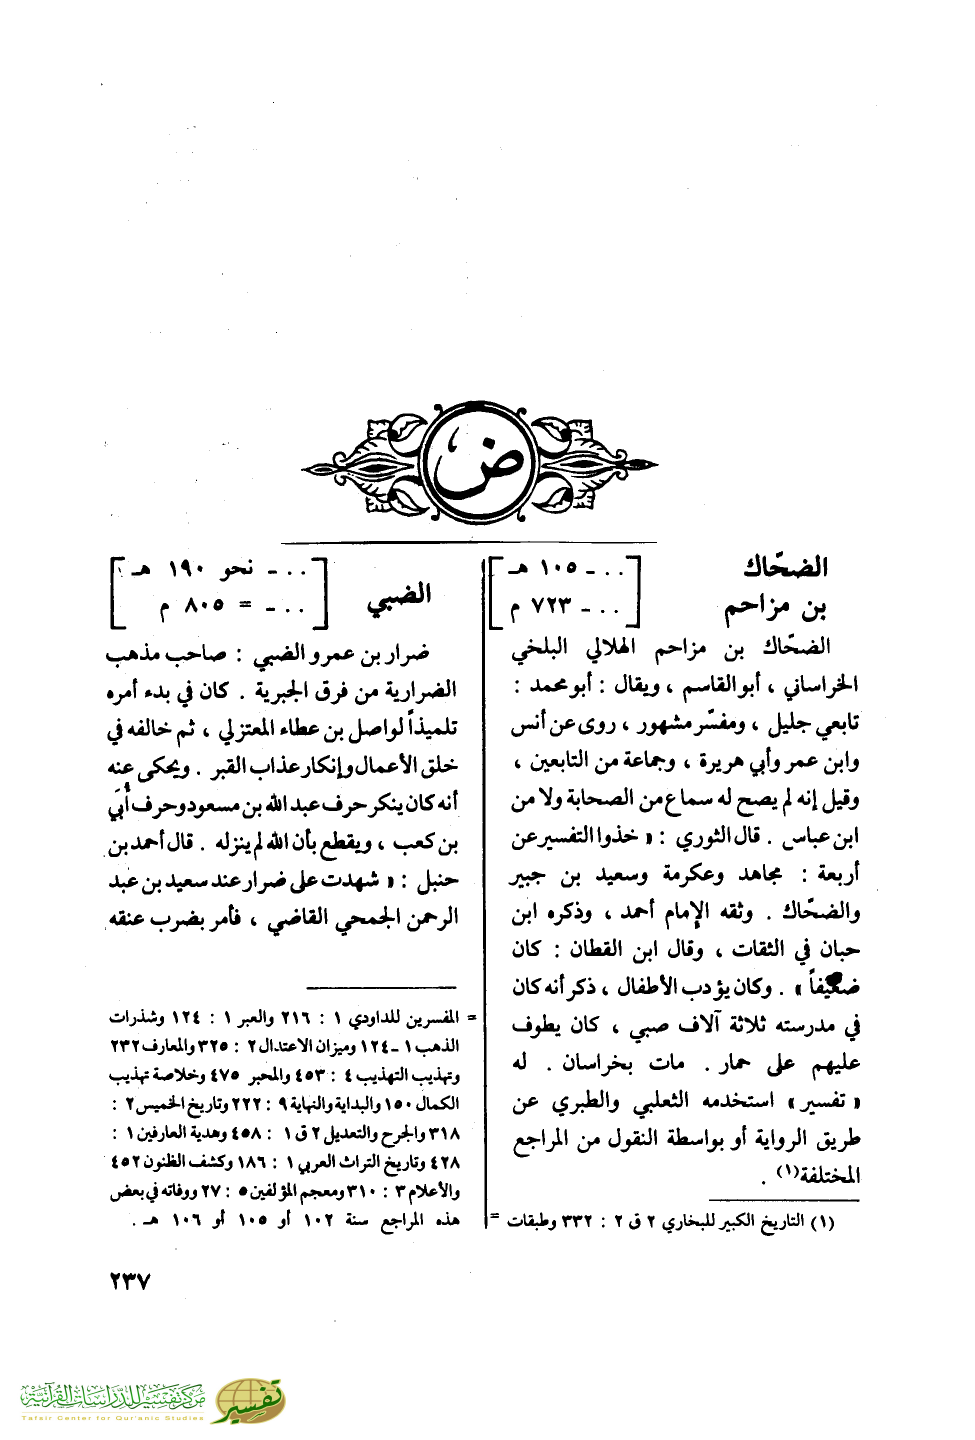 ض
الضحّاك
بن مزاحم
[ . . . ـ ١٠٥ هـ ]
[ . . . ـ ٧٢٣ م ]
الضحّاك بن مزاحم الهلالي البلخي
الخراساني ، أبو القاسم ، ويقال : أبو محمد :
تابعي جليل ، ومفسّر مشهور ، روى عن أنس
وابن عمر وأبي هريرة ، وجماعة من التابعين ،
وقيل إنه لم يصح له سماع من الصحابة ولا من
ابن عباس . قال الثوري : « خذوا التفسير عن
أربعة : مجاهد وعكرمة وسعيد بن جبير
والضحّاك . وثقه الإمام أحمد ، وذكره ابن
حبان في الثقات ، وقال ابن القطان : كان
ضعيفاً » . وكان يؤدب الأطفال ، ذكر أنه كان
في مدرسته ثلاثة آلاف صبي ، كان يطوف
عليهم على حمار . مات بخراسان . له
« تفسير » استخدمه الثعلبي والطبري عن
طريق الرواية أو بواسطة النقول من المراجع
المختلفة(١) .
(١) التاريخ الكبير للبخاري ٢ ق ٢ : ٣٣٢ وطبقات =
الضبي
[ . . . ـ نحو ١٩٠ هـ ]
[ . . . ـ = ٨٠٥ م ]
ضرار بن عمرو الضبي : صاحب مذهب
الضرارية من فرق الجبرية . كان في بدء أمره
تلميذاً لواصل بن عطاء المعتزلي ، ثم خالفه في
خلق الأعمال وإنكار عذاب القبر . ويحكى عنه
أنه كان ينكر حرف عبد الله بن مسعود وحرف أُبَي
بن كعب ، ويقطع بأن الله لم ينزله . قال أحمد بن
حنبل : « شهدت على ضرار عند سعيد بن عبد
الرحمن الجمحي القاضي ، فأمر بضرب عنقه
= المفسرين للداودي ١ : ٢١٦ والعبر ١ : ١٢٤ وشذرات
الذهب ١ ـ ١٢٤ وميزان الاعتدال ٢ : ٣٢٥ والمعارف ٢٣٢
وتهذيب التهذيب ٤ : ٤٥٣ والمحبر ٤٧٥ وخلاصة تهذيب
الكمال ١٥٠ والبداية والنهاية ٩ : ٢٢٢ وتاريخ الخميس ٢ :
٣١٨ والجرح والتعديل ٢ ق ١ : ٤٥٨ وهدية العارفين ١ :
٤٢٨ وتاريخ التراث العربي ١ : ١٨٦ وكشف الظنون ٤٥٢
والأعلام ٣ : ٣١٠ ومعجم المؤلفين ٥ : ٢٧ ووفاته في بعض
هذه المراجع سنة ١٠٢ أو ١٠٥ أو ١٠٦ هـ .
٢٣٧
مركز تفسير للدراسات القرآنية
Tafsir Center for Qur'anic Studies
تفسير